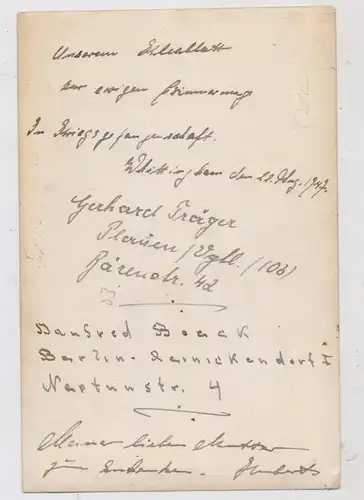 Unserem Eichenblatt
zur ewigen Erinnerung
In Kriegsgefangenschaft.
Whittingham den 22. Aug. 1947.
Gerhard Träger
Plauen / Vgtl. (10b)
Bärenstr. 42
Manfred Boack
Berlin-Reinickendorf I
Neptunstr. 4
Meiner lieben Mutter
zum Andenken. Hubert